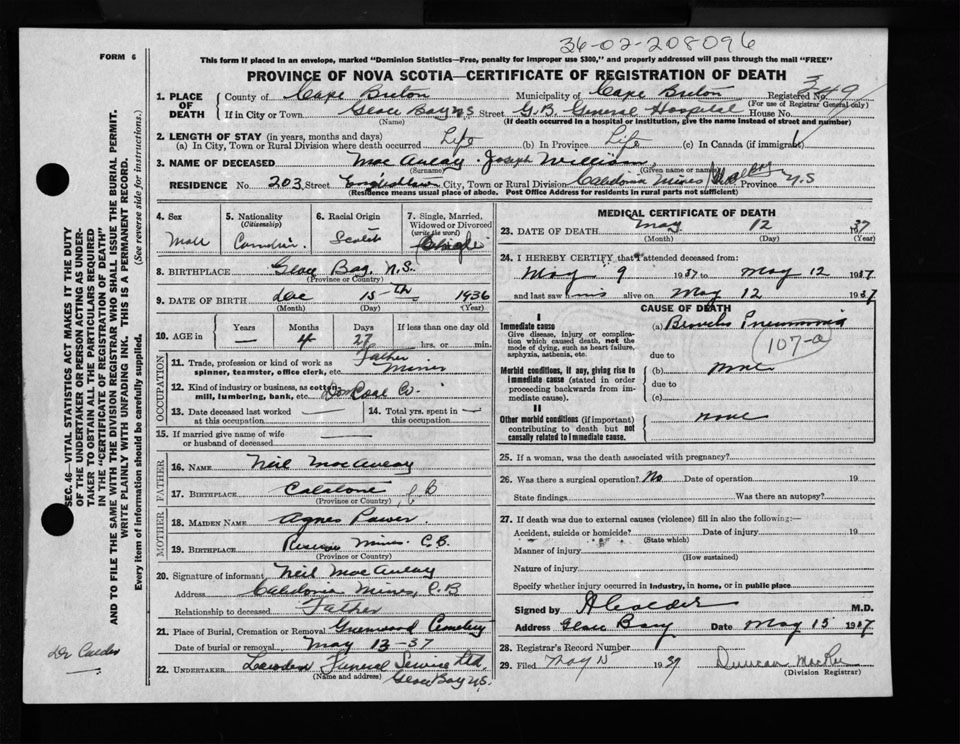 36-02-208096
FORM 6
This form if placed in an envelope, marked "Dominion Statistics—Free, penalty for improper use $300," and properly addressed will pass through the mail "FREE"
PROVINCE OF NOVA SCOTIA—CERTIFICATE OF REGISTRATION OF DEATH
349
1. PLACE OF DEATH
County of Cape Breton Municipality of Cape Breton Registered No.
(For use of Registrar General only)
If in City or Town Glace Bay N.S. Street G.B. General Hospital House No.
(Name) (If death occurred in a hospital or institution, give the name instead of street and number)
2. LENGTH OF STAY (in years, months and days)
(a) In City, Town or Rural Division where death occurred Life (b) In Province Life (c) In Canada (if immigrant)
3. NAME OF DECEASED MacAulay Joseph William
(Surname) (Given name or names)
RESIDENCE No. 203 Street City, Town or Rural Division Caledonia Mines Province N.S
(Residence means usual place of abode. Post Office Address for residents in rural parts not sufficient)
4. Sex Male
5. Nationality (Citizenship) Canadian
6. Racial Origin Scotch
7. Single, Married, Widowed or Divorced (write the word) Single
8. BIRTHPLACE Glace Bay, N.S.
(Province or Country)
9. DATE OF BIRTH Dec 15th 1936
(Month) (Day) (Year)
10. AGE in Years — Months 4 Days 27 If less than one day old
hrs. or min.
OCCUPATION
11. Trade, profession or kind of work as spinner, teamster, office clerk, etc. Father Miner
12. Kind of industry or business, as cotton mill, lumbering, bank, etc. Dom Coal Co.
13. Date deceased last worked at this occupation —
14. Total yrs. spent in this occupation —
15. If married give name of wife or husband of deceased —
FATHER
16. NAME Neil MacAulay
17. BIRTHPLACE C B
(Province or Country)
MOTHER
18. MAIDEN NAME Agnes Power
19. BIRTHPLACE Reserve Mines C.B.
(Province or Country)
20. Signature of informant Neil MacAulay
Address Caledonia Mines, C.B
Relationship to deceased Father
21. Place of Burial, Cremation or Removal Greenwood Cemetery
Date of burial or removal May 13-37
22. UNDERTAKER Funeral Service Ltd.
(Name and address) Glace Bay N.S.
MEDICAL CERTIFICATE OF DEATH
23. DATE OF DEATH May 12 1937
(Month) (Day) (Year)
24. I HEREBY CERTIFY that I attended deceased from:
May 9 1937 to May 12 1937
and last saw him alive on May 12 1937
CAUSE OF DEATH
I
Immediate cause (a) Broncho Pneumonia
Give disease, injury or complication which caused death, not the mode of dying, such as heart failure, asphyxia, asthenia, etc.
107-a
due to
Morbid conditions, if any, giving rise to immediate cause (stated in order proceeding backwards from immediate cause). (b) none
due to
(c)
II
Other morbid conditions (if important) contributing to death but not causally related to immediate cause. none
25. If a woman, was the death associated with pregnancy?
26. Was there a surgical operation? No Date of operation 19
State findings Was there an autopsy?
27. If death was due to external causes (violence) fill in also the following:—
Accident, suicide or homicide? Date of injury 19
(State which)
Manner of injury
(How sustained)
Nature of injury
Specify whether injury occurred in industry, in home, or in public place
Signed by A Calder M.D.
Address Glace Bay Date May 15 1937
28. Registrar's Record Number
29. Filed May 15 1937 Duncan MacRae
(Division Registrar)
SEC. 46—VITAL STATISTICS ACT MAKES IT THE DUTY
OF THE UNDERTAKER OR PERSON ACTING AS UNDERTAKER
TO OBTAIN ALL THE PARTICULARS REQUIRED
IN THE "CERTIFICATE OF REGISTRATION OF DEATH"
AND TO FILE THE SAME WITH THE DIVISION REGISTRAR WHO SHALL ISSUE THE BURIAL PERMIT.
WRITE PLAINLY WITH UNFADING INK. THIS IS A PERMANENT RECORD.
Every item of information should be carefully supplied. (See reverse side for instructions.)
Dr Calder